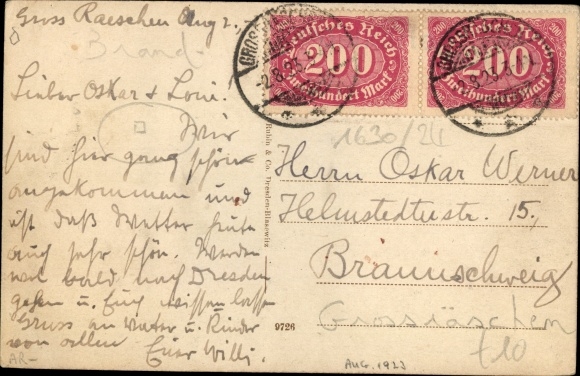 Gross Raeschen Aug 2.
Brand-
Lieber Oskar & Loni.
Wir
sind hier ganz schön
angekommen und
ist daß Wetter heute
auch sehr schön. Werden
wol bald nach Dresden
gehen u. Euch wissen lassen
Gruss an Vater u. Kinder
von allen Euer Willi.
AR-
Deutsches Reich
200 200
200
Zweihundert Mark
Deutsches Reich
200 200
200
Zweihundert Mark
1630/24
Herrn Oskar Werner
Helmstedterstr. 15.
Braunschweig
Grossräschen
£10
& Co. Dresden-Blasewitz
9726
AUG. 1923